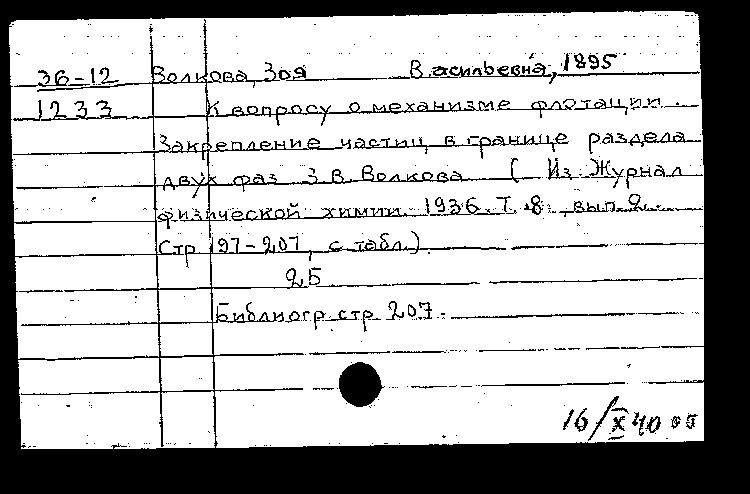 36-12 Волкова, Зоя Васильевна, 1895
1233 К вопросу о механизме флотации.
Закрепление частиц в границе раздела
двух фаз З В Волкова ( Из Журнал
физической химии 1936. Т. 8. вып. 2.
Стр 197-207, с табл.)
25
Библиогр стр 207.
16/X 40